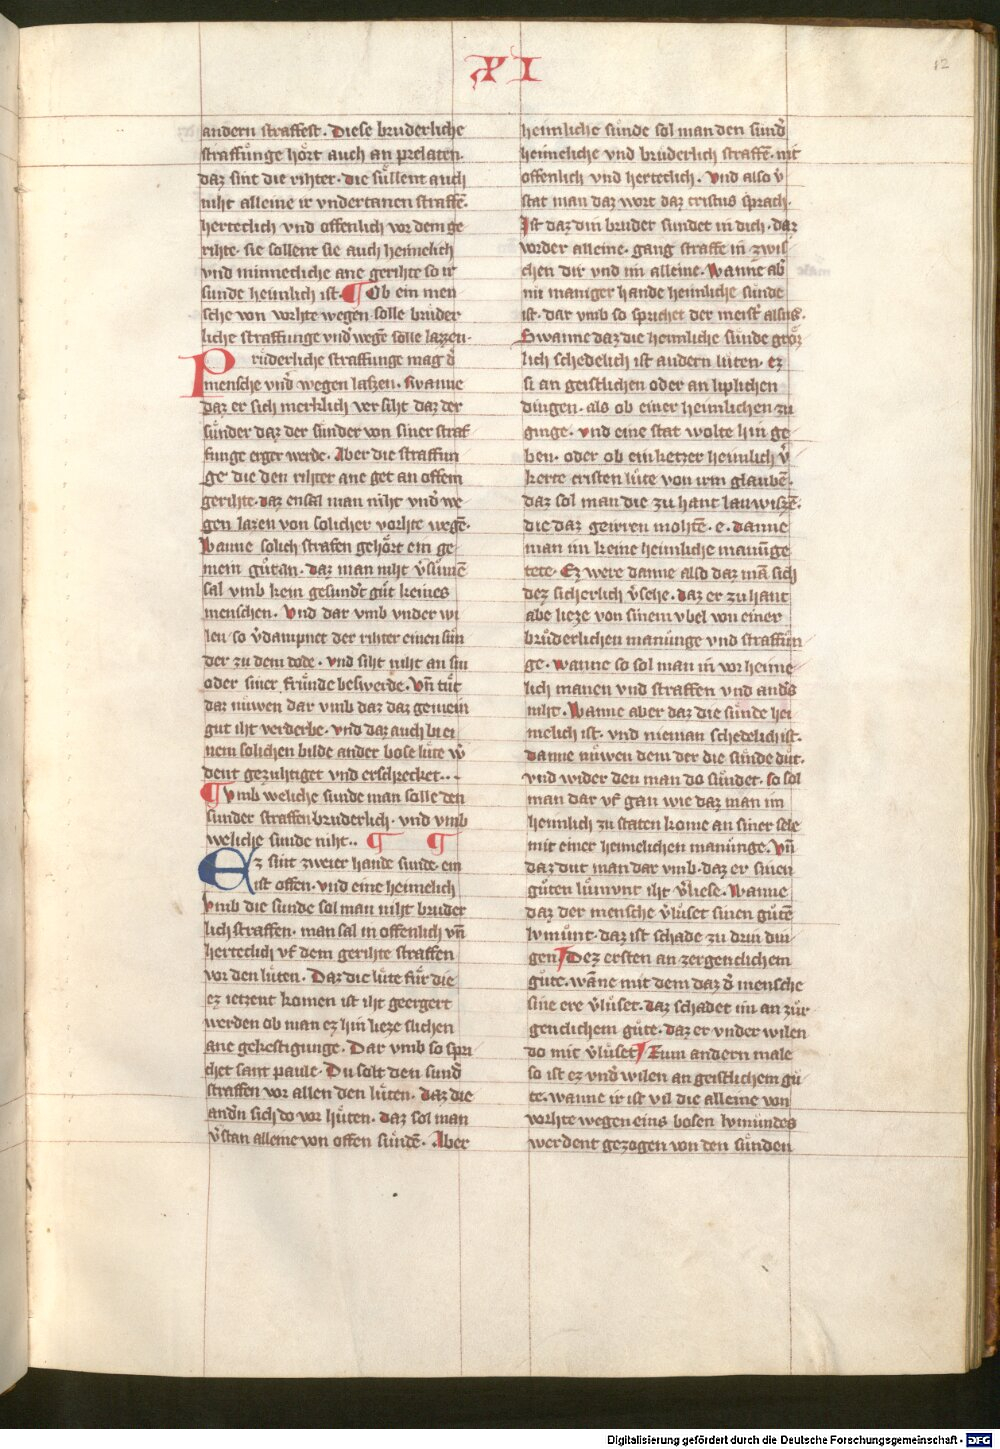 XI
12
andern straffest. Diese bruderliche
straffunge hoͤrt auch an prelaten.
daz sint die rihter. die suͤllent auch
niht alleine ir vndertanen straffē.
herteclich vnd offenlich vor dem ge
rihte. sie sollent sie auch heimelich
vnd minnecliche ane gerihte so ir
sunde heimlich ist. ¶ Ob ein men
sche von vorhte wegen solle bruder
liche straffunge vnd̓wegē solle lazzen.
Pruderliche straffunge mag d̓
mensche vnd̓ wegen laszen. swanne
daz er sich merklich ver siht daz der
suͤnder daz der sunder von siner straf
funge erger werde. Aber die straffun
ge die den rihter ane get an offem
gerihte. daz ensal man niht vnd̓ we
gen lazen von solicher vorhte wegē.
Wanne solich strafen gehoͤrt ein ge
mein guͤt an. daz man niht v̓sumē
sal vmb kein gesund̓t guͤt keines
menschen. Vnd dar vmb vnder wi
len so v̓dampnet der rihter einen sun
der zu dem tode. vnd siht niht an sin
oder siner fruͤnde beswerde. Vn̄ tuͤt
daz nuwen dar vmb daz daz gemein
gut iht verderbe. vnd daz auch bi ei
nem solichen bilde ander bose luͤte w̓
dent gezuhtiget vnd erschrecket..
¶ Vmb weliche sunde man solle den
sunder straffen bruderlich. vnd vmb
weliche sunde niht.. ¶ ¶
Ez sint zweier hande sunde. ein
ist offen. vnd eine heimelich
Vmb die sunde sol man niht bruder
lich straffen. man sal in offenlich vn̄
herteclich vf dem gerihte straffen
vor den luͤten. Daz die luͤte fuͤr die
ez ietzent komen ist iht geergert
werden ob man ez hin lieze slichen
ane gekestigunge. Dar vmb so spri
chet sant paule. Du solt den sund̓
straffen vor allen den luͤten. daz die
and̓n sich do vor huͤten. daz sol man
v̓stan alleine von offen suͤndē. Aber
heimliche suͤnde sol man den sund̓
heimeliche vnd bruderlich straffē. nit
offenlich vnd herteclich. Vnd also v̓
stat man daz wort daz cristus sprach.
Ist daz din bruder sundet in dich. daz
vorder alleine. gang straffe in zwis
chen dir vnd im alleine. Wanne ab̓
nu maniger hande heimliche sunde
ist. dar vmb so sprichet der meist̓ alsus.
Swanne daz die heimliche suͤnde groͤz
lich schedelich ist andern luten. ez
si an geistlichen oder an liplichen
dingen. als ob einer heimlichen zu
ginge. vnd eine stat wolte hin ge
ben. oder ob ein ketzer heimlich v̓
kerte cristen luͤte von irm glaubē.
daz sol man die zu hant lan wiszē.
die daz geirren mohtē. e. danne
man im keine heimliche manuͤnge
tete. Ez were danne also daz mā sich
dez sicherlich v̓sehe. daz er zu hant
abe lieze von sinem vbel von einer
bruͤderlichen manunge vnd straffun
ge. wanne so sol man in vor heime
lich manen vnd straffen vnd and̓s
niht. Wanne aber daz die suͤnde hei
melich ist. vnd nieman schedelich ist.
danne nuwen dem der die suͤnde duͤt.
vnd wider den man do suͤndet. so sol
man dar vf gan wie daz man im
heimlich zu staten kome an siner sele
mit einer heimelichen manuͤnge. Vn̄
daz dut man dar vmb. daz er sinen
guͤten luͤmunt iht v̓liese. Wanne
daz der mensche v̓luset sinen guͤtē
lymuͤnt. daz ist schade zu drin din
gen. Dez ersten an zergenclichem
guͤte. wāne mit dem daz d̓ mensche
sine ere v̓luͤset. daz schadet im an zuͤr
genclichem guͤte. daz er vnder wilen
do mit v̓luͤset. Zum andern male
so ist ez vnd̓ wilen an geistlichem guͤ
te. wanne ir ist vil die alleine von
vorhte wegen eins bosen lymuͤndes
werdent gezogen von den suͤnden
Digitalisierung gefördert durch die Deutsche Forschungsgemeinschaft - DFG